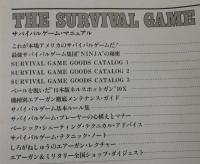 THE SURVIVAL GAME
サバイバルゲーム・マニュアル
これが本場アメリカのサバイバルゲームだ!
最強サバイバルゲーム集団"NINJA"の秘密
SURVIVAL GAME GOODS CATALOG 1
SURVIVAL GAME GOODS CATALOG 2
SURVIVAL GAME GOODS CATALOG 3
ベールを脱いだ"日本版ネルスポットガン"10X
機種別エアーガン徹底メンテナンス・ガイド
サバイバルゲーム基本ルール集
サバイバルゲーム・プレーヤーの心構えとマナー
ベーシック・シューティング・テクニカル・アドバイス
サバイバルゲーム・テクニック・ノート
しろがねしょうのエアーガン・レクチャー
エアーガン&ミリタリー全国ショップ・ダイジェスト